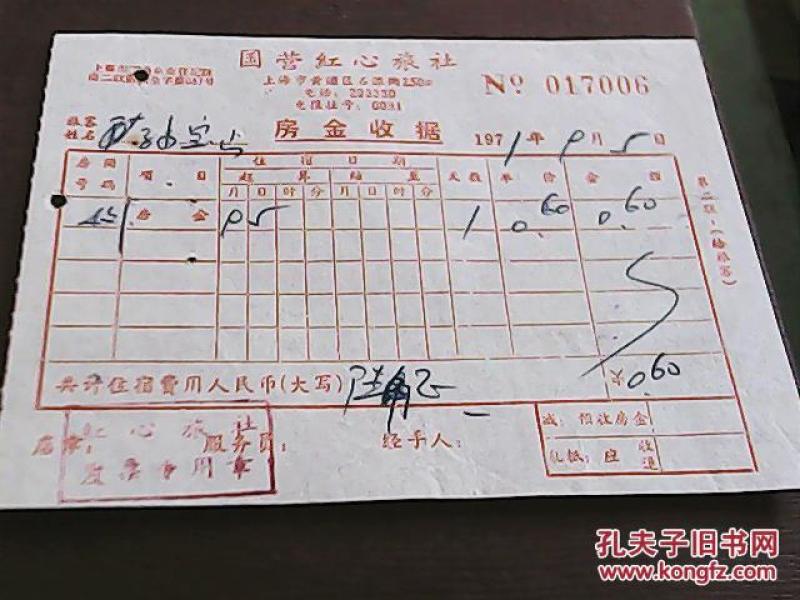 国营红心旅社
上海市黄浦区石潭街250号
电话：223330
电报挂号：0031
No 017006
房金收据
1971年9月5日
旅客姓名
房间号码 项目 住宿日期 天数 单价 金额
起算 结至
月 日 时 分 月 日 时 分
房金 9 5 1 0.60 0.60
共计住宿费用人民币(大写) 陆角正
¥0.60
店章： 服务员： 经手人：
红心旅社
发票专用章
减：预收房金
轧抵：应收退
第二联：(给旅客)
孔夫子旧书网
www.kongfz.com